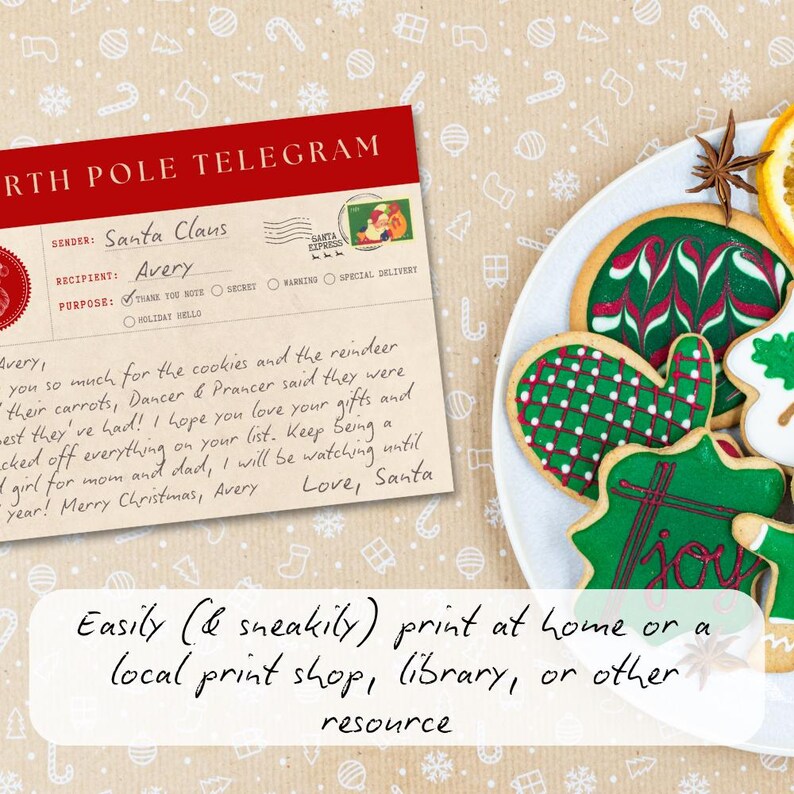 RTH POLE TELEGRAM
SENDER: Santa Claus
RECIPIENT: Avery
PURPOSE: THANK YOU NOTE SECRET WARNING SPECIAL DELIVERY
HOLIDAY HELLO
SANTA
EXPRESS
Avery,
you so much for the cookies and the reindeer
their carrots, Dancer & Prancer said they were
est they've had! I hope you love your gifts and
cked off everything on your list. Keep being a
d girl for mom and dad, I will be watching until
year! Merry Christmas, Avery
Love, Santa
joy
Easily (& sneakily) print at home or a
local print shop, library, or other
resource